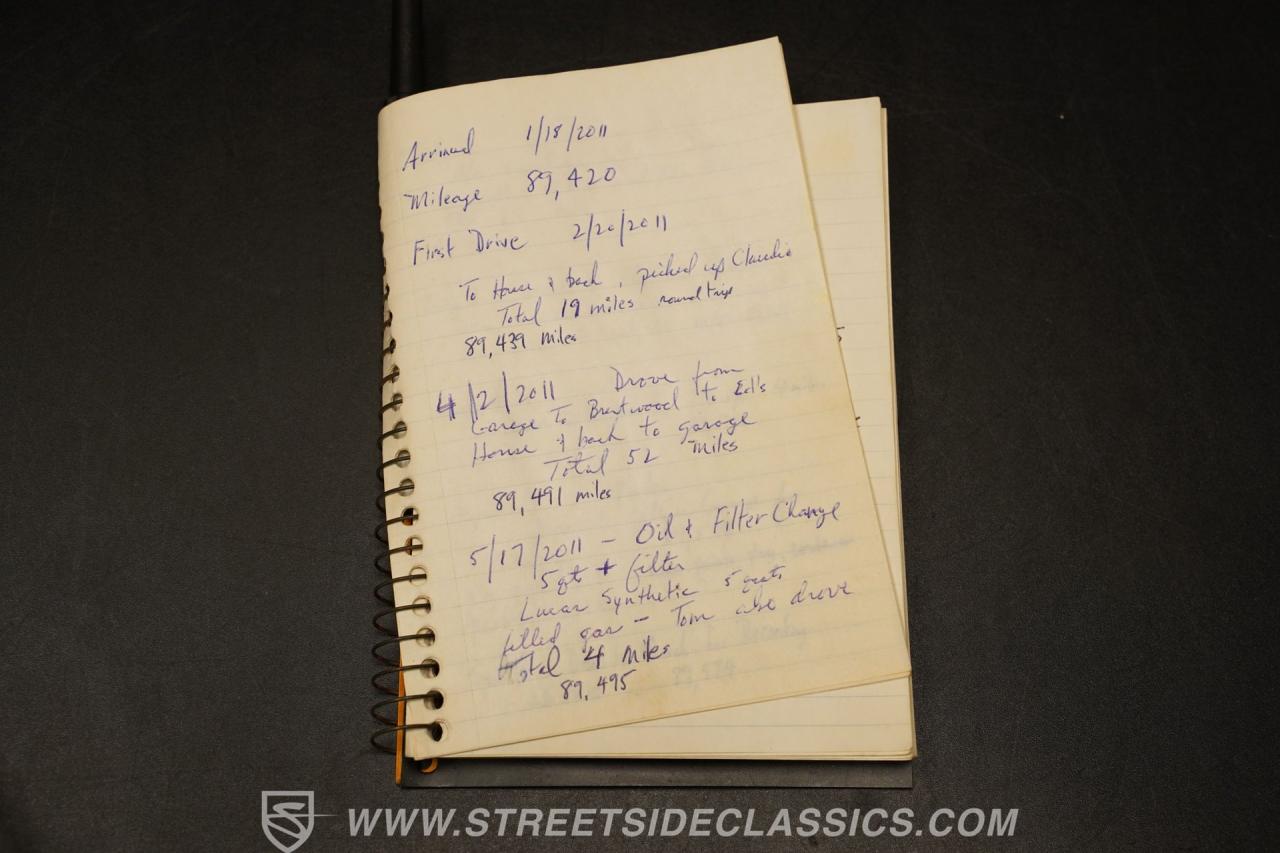 Arrived 1/18/2011
Mileage 89,420
First Drive 2/20/2011
To House & back, picked up Claudia
Total 19 miles round trip
89,439 miles
4/2/2011 Drove from
Garage To Brentwood to Ed's
House & back to garage
Total 52 miles
89,491 miles
5/17/2011 - Oil & Filter Change
5 qts + filter
Lucas Synthetic 5 qts
filled gas - Tom also drove
Total 4 miles
89,495
WWW.STREETSIDECLASSICS.COM